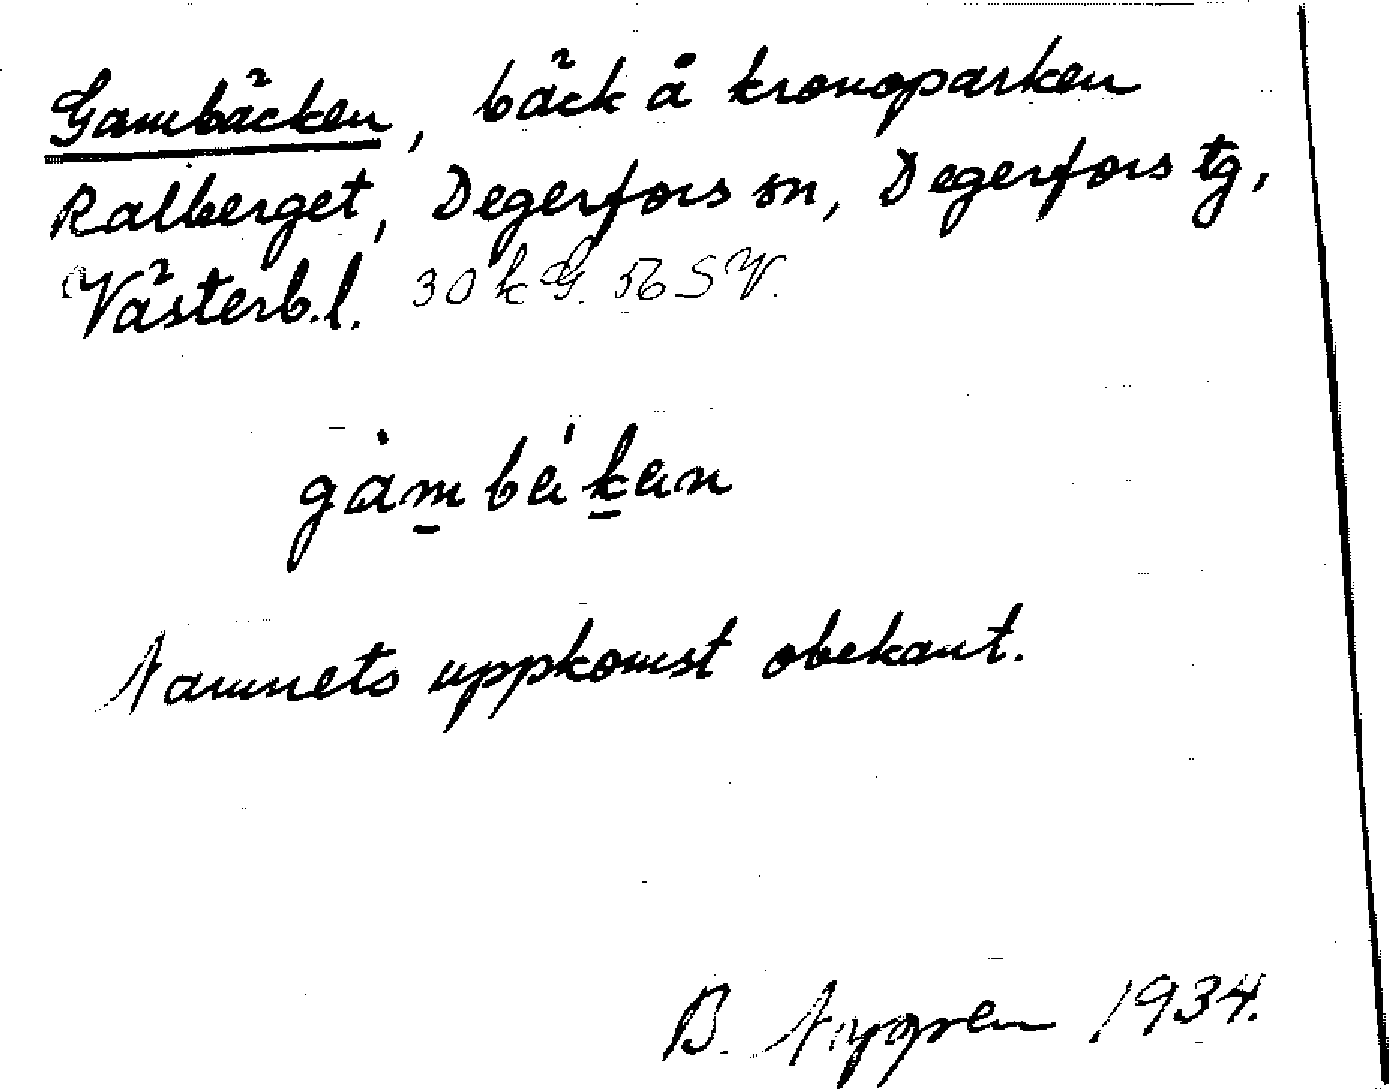 Gambäcken, bäck å kronoparken
Ralberget, Degerfors sn, Degerfors tg,
Västerb.l. 30 k G. 56 SV.
gàmbä́ken
Namnets uppkomst obekant.
B. Nygren 1934.